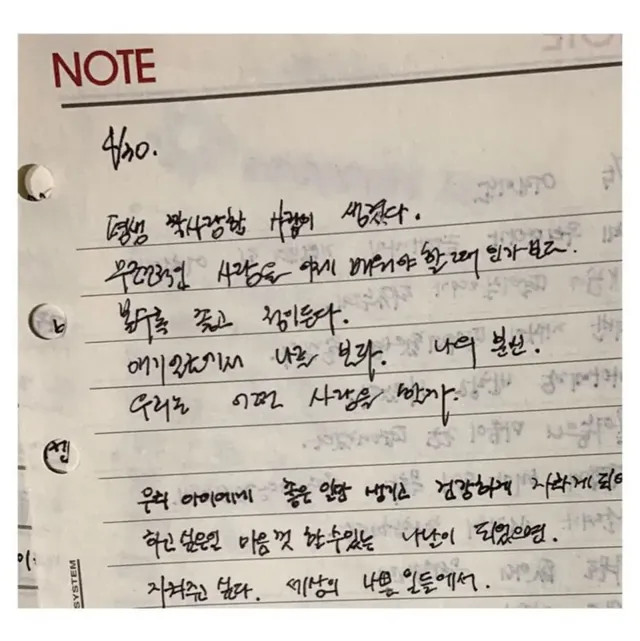 NOTE
4/30.
평생 짝사랑할 사람이 생겼다.
무조건적인 사랑을 이제 배워야 할 때 인가보다.
볼수록 좋고 정이든다.
얘기 있는데서 나를 보라. 나의 분신.
우리는 어떤 사랑을 할까.
우리 아이에게 좋은 일만 생기고 건강하게 자라게 되어
하고 싶은일 마음껏 할수있는 나날이 되었으면.
지켜주고 싶다. 세상의 나쁜 일들에서.
SYSTEM